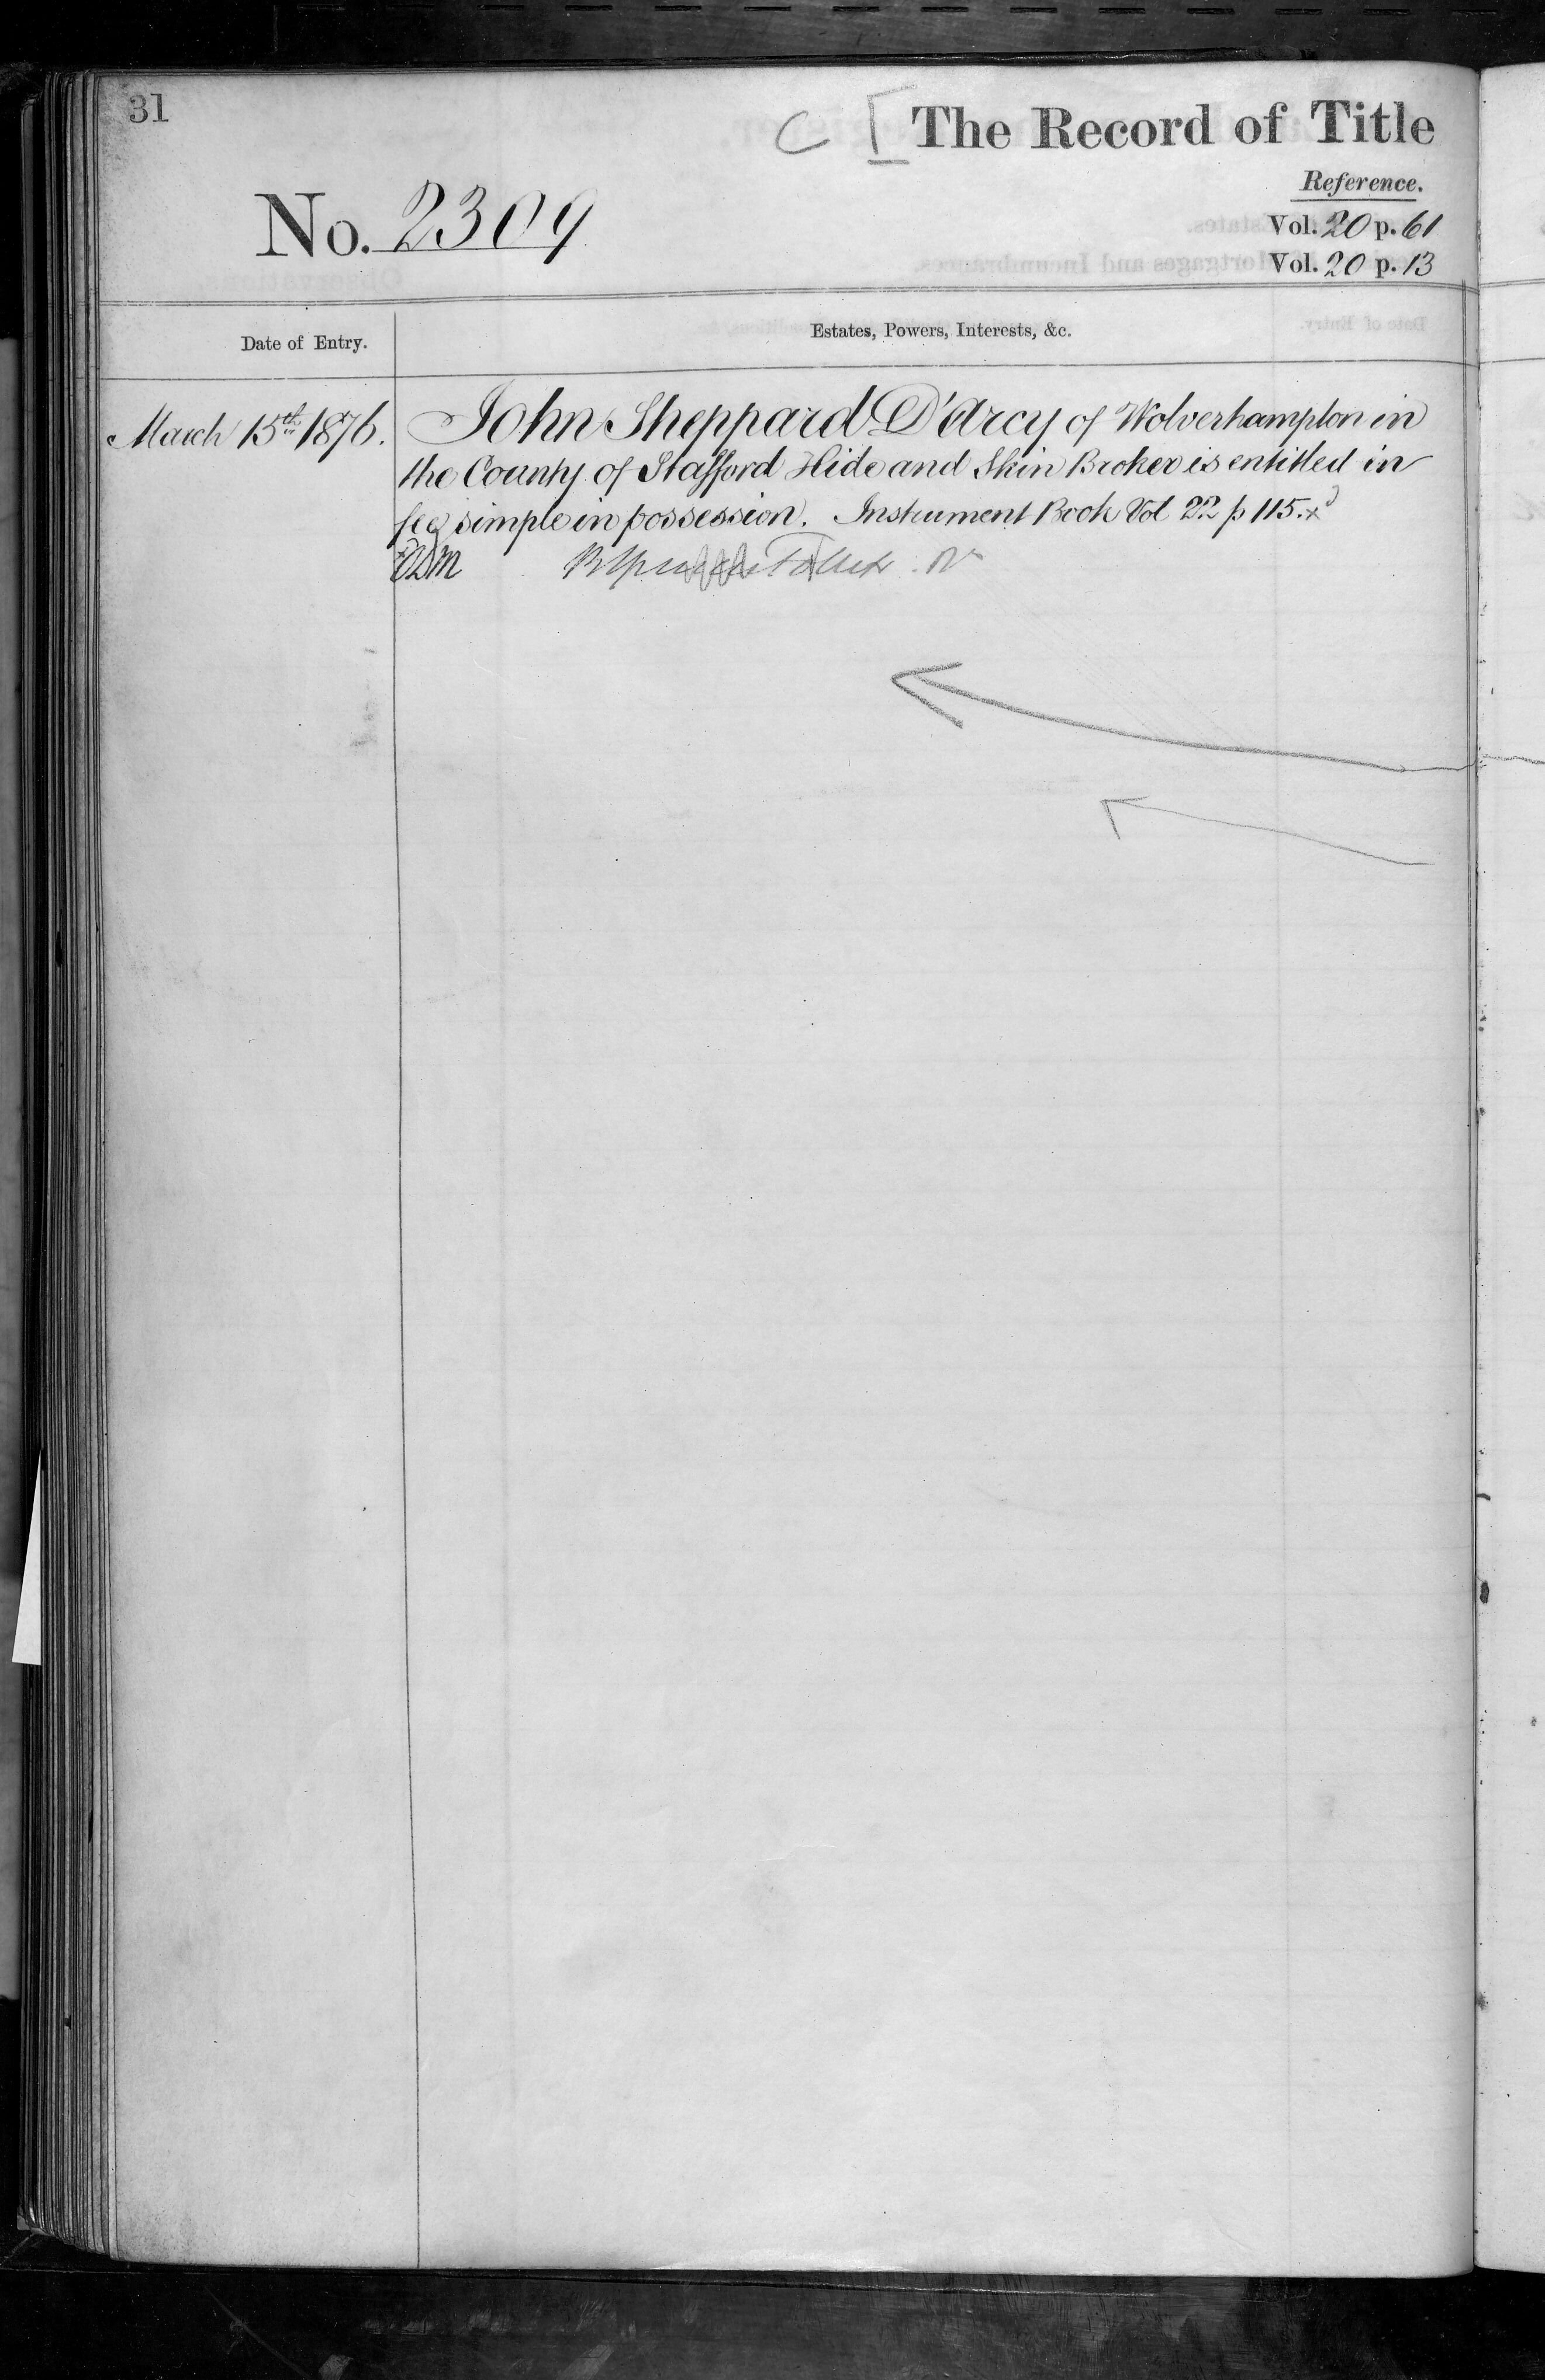 31
C [ The Record of Title
Reference.
No. 2309
Vol. 20 p. 61
Vol. 20 p. 13
Date of Entry.
Estates, Powers, Interests, &c.
March 15th 1876.
John Sheppard D'Arcy of Wolverhampton in
the County of Stafford Hide and Skin Broker is entitled in
fee simple in possession. Instrument Book Vol 22 p 115. x